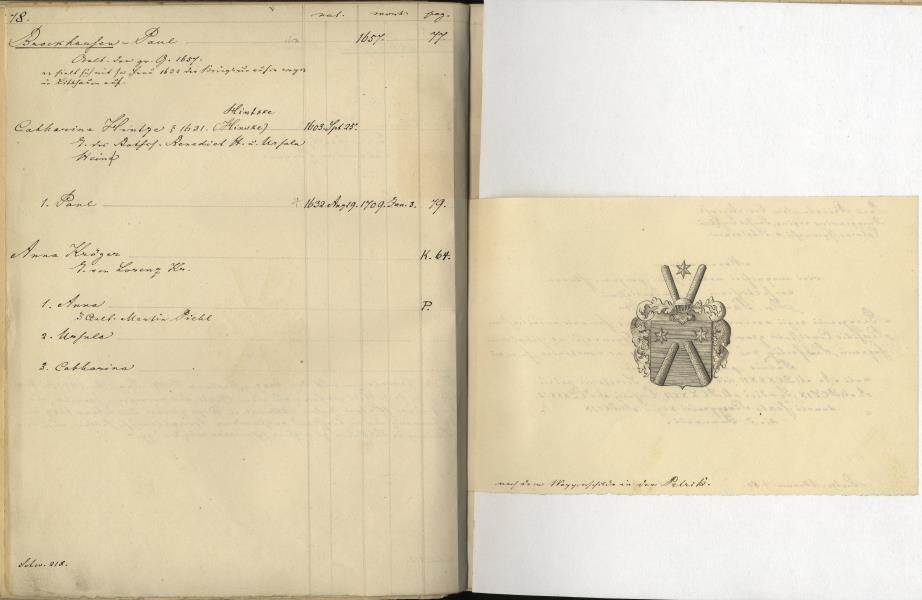 78.
nat. mort. pag.
Brockhausen - Paul 1657. 77.
Aelt. der gr. G. 1657.
er hielt sich mit sr Frau 1622 der Kriegsunruhen wegen
in Litthauen auf.
Hintzke
Catharina Hintze † 1631. (Hinske) 1603. Spt 25.
T. des Rathsh. Benedict H. u. Ursula
1. Paul 1632. Aug 19. 1709. Jan. 3. 79.
Anna Kröger K. 64.
T. von Lorenz Kr.
1. Anna P.
Aelt. Martin Piehl
2. Ursula
3. Catharina
Schw. 218.
nach dem Wappenschilde in der Petrik.